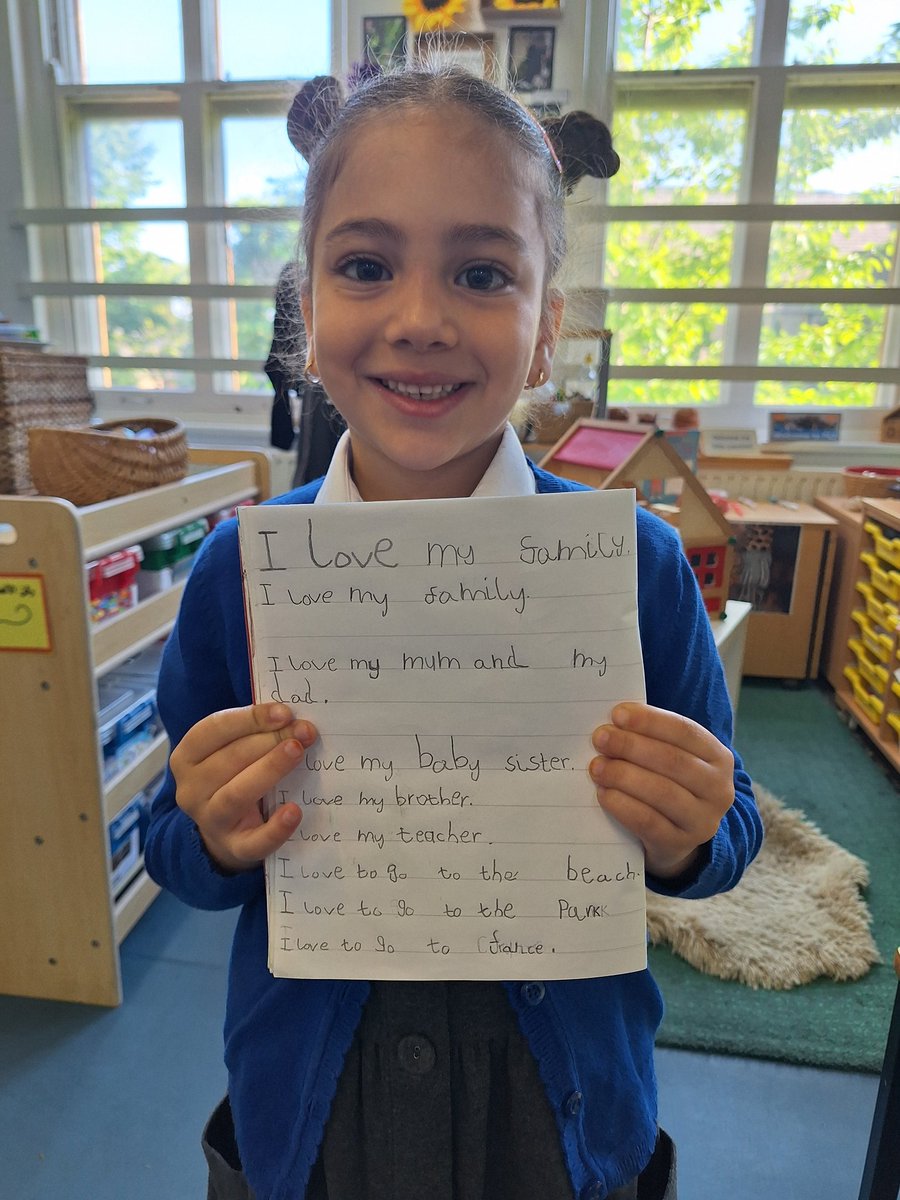 I Love my family.
I love my family.
I love my mum and my
dad.
love my baby sister.
I love my brother.
I love my teacher.
I love to go to the beach.
I love to go to the Park
I love to go to france.